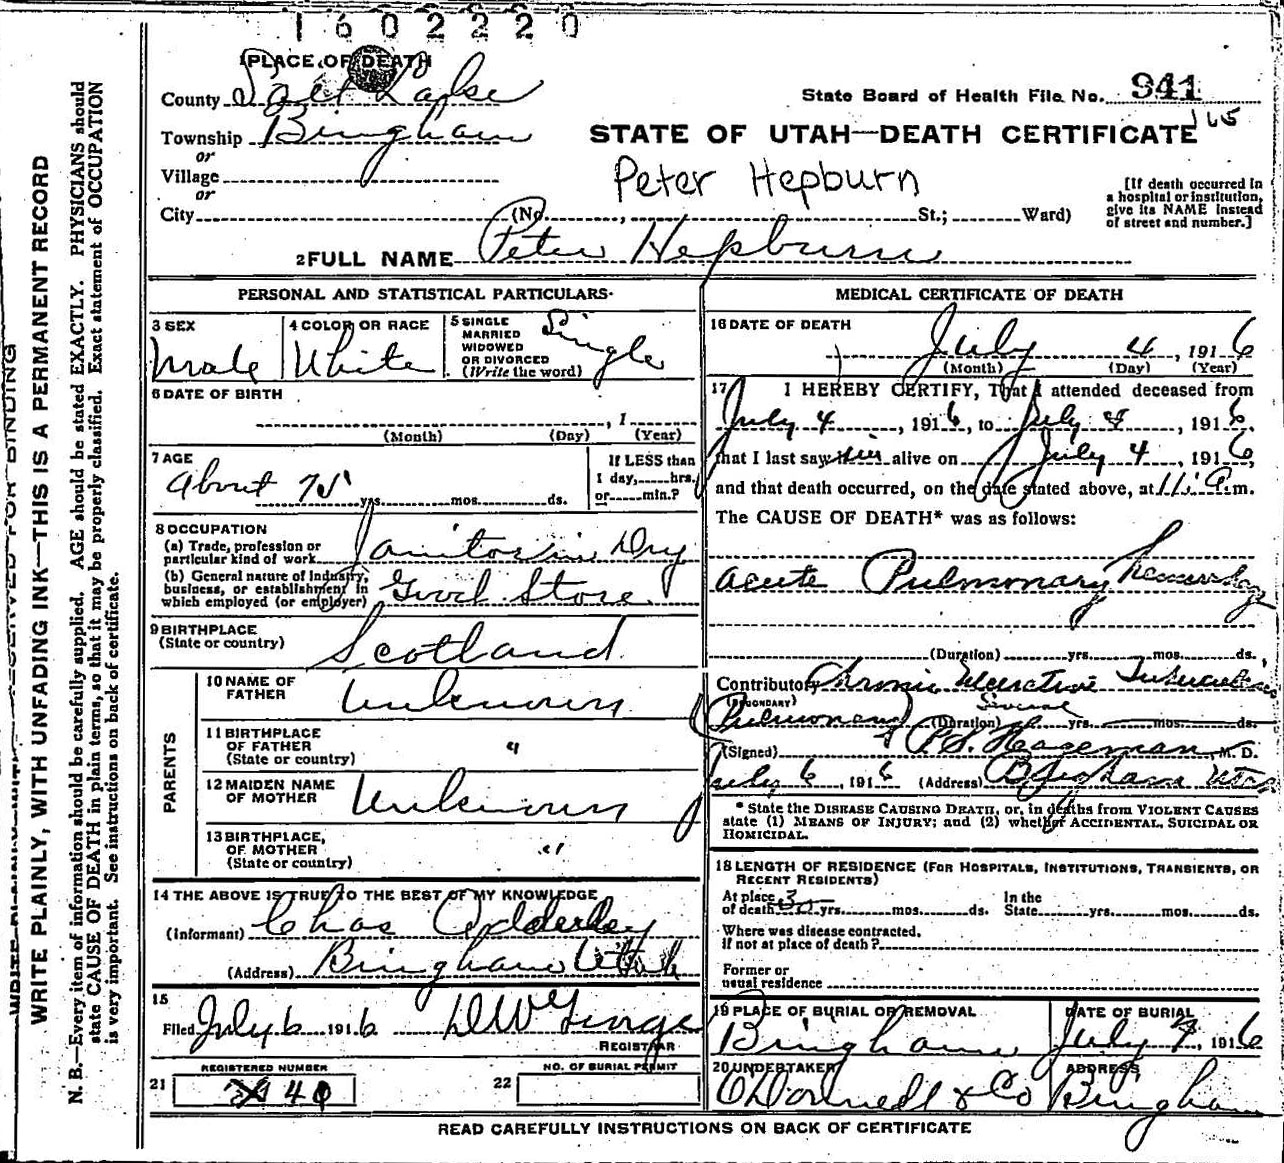 1602220
1 PLACE OF DEATH
County Salt Lake
State Board of Health File No. 941
Township Bingham
165
STATE OF UTAH—DEATH CERTIFICATE
or
Village
Peter Hepburn
or
City (No. , St.; Ward)
[If death occurred in
a hospital or institution,
give its NAME instead
of street and number.]
2 FULL NAME Peter Hepburn
PERSONAL AND STATISTICAL PARTICULARS
3 SEX
Male
4 COLOR OR RACE
White
5 SINGLE
MARRIED
WIDOWED
OR DIVORCED
(Write the word)
Single
6 DATE OF BIRTH
, 1
(Month) (Day) (Year)
7 AGE
About 75 yrs. mos. ds.
If LESS than
1 day, hrs.
or min.?
8 OCCUPATION
(a) Trade, profession or
particular kind of work Janitor in Dry
(b) General nature of Industry,
business, or establishment in
which employed (or employer) Good Store
9 BIRTHPLACE
(State or country) Scotland
PARENTS
10 NAME OF
FATHER Unknown
11 BIRTHPLACE
OF FATHER
(State or country) "
12 MAIDEN NAME
OF MOTHER Unknown
13 BIRTHPLACE,
OF MOTHER
(State or country) "
14 THE ABOVE IS TRUE TO THE BEST OF MY KNOWLEDGE
(Informant) Chas Adderley
(Address) Bingham Utah
15
Filed July 6 1916
REGISTRAR
REGISTERED NUMBER
21 40
NO. OF BURIAL PERMIT
22
MEDICAL CERTIFICATE OF DEATH
16 DATE OF DEATH
July 4, 1916
(Month) (Day) (Year)
17 I HEREBY CERTIFY, That I attended deceased from
July 4, 1916, to July 4, 1916,
that I last saw him alive on July 4, 1916,
and that death occurred, on the date stated above, at 11 a.m.
The CAUSE OF DEATH* was as follows:
acute Pulmonary hemorrhage
(Duration) yrs. mos. ds.
Contributory Chronic Ulcerative Tuberculosis
(SECONDARY)
(Pulmonary) (Duration) Several yrs. mos. ds.
(Signed) P.S. Hageman M. D.
July 6, 1916 (Address) Bingham Utah
* State the DISEASE CAUSING DEATH, or, in deaths from VIOLENT CAUSES
state (1) MEANS OF INJURY; and (2) whether ACCIDENTAL, SUICIDAL OR
HOMICIDAL.
18 LENGTH OF RESIDENCE (FOR HOSPITALS, INSTITUTIONS, TRANSIENTS, OR
RECENT RESIDENTS)
At place
of death 30 yrs. mos. ds.
In the
State yrs. mos. ds.
Where was disease contracted,
if not at place of death?
Former or
usual residence
19 PLACE OF BURIAL OR REMOVAL
Bingham
DATE OF BURIAL
July 7, 1916
20 UNDERTAKER
O'Donnell & Co
ADDRESS
Bingham
READ CAREFULLY INSTRUCTIONS ON BACK OF CERTIFICATE
RESERVED FOR BINDING
WRITE PLAINLY, WITH UNFADING INK—THIS IS A PERMANENT RECORD
N. B.—Every item of information should be carefully supplied. AGE should be stated EXACTLY. PHYSICIANS should
state CAUSE OF DEATH in plain terms, so that it may be properly classified. Exact statement of OCCUPATION
is very important. See instructions on back of certificate.